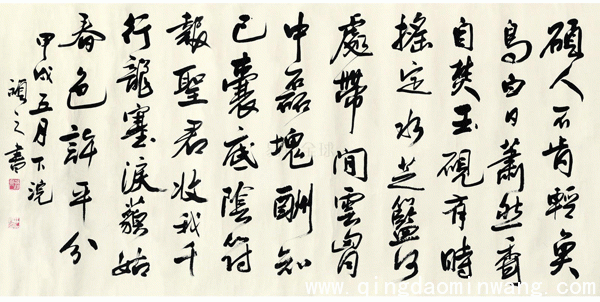 碩人不肯輕魚
鳥白日蕭然香
自焚玉硯有時
搖定水芝籃何
處帶間雲胷
中磊塊酬知
己囊底陰符
報聖君收我千
行龍塞淚藐姑
春色許平分
甲戌五月下浣
之書
www.qingdaominwang.com